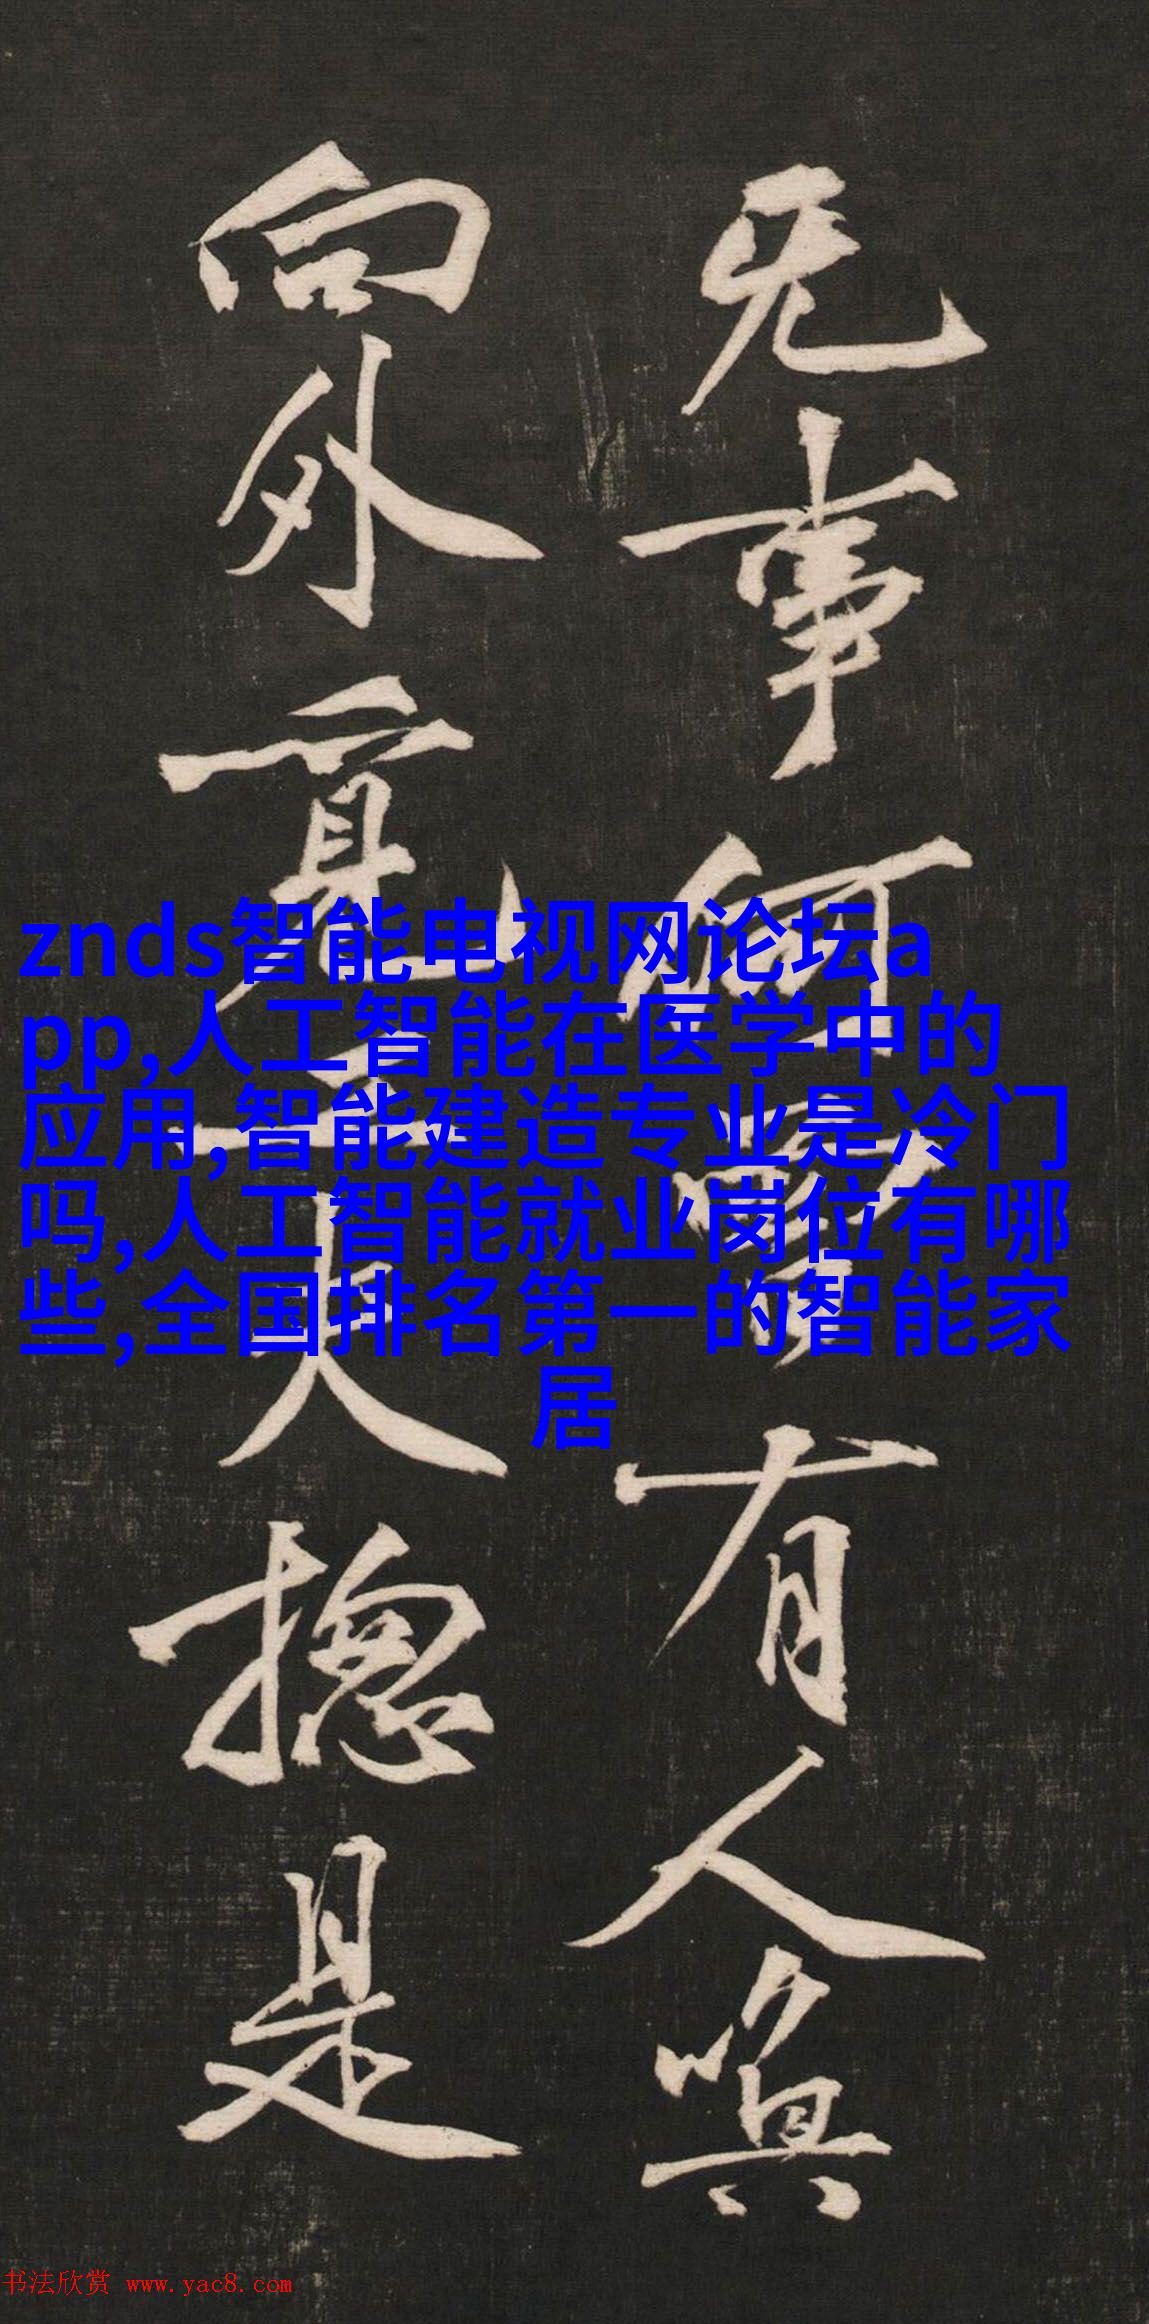 无事何有人
向外覓工夫捴是
znds智能电视网论坛a
pp,人工智能在医学中的
应用,智能建造专业是冷门
吗,人工智能就业岗位有哪
些,全国排名第一的智能家
居
书法欣赏 www.yac8.com